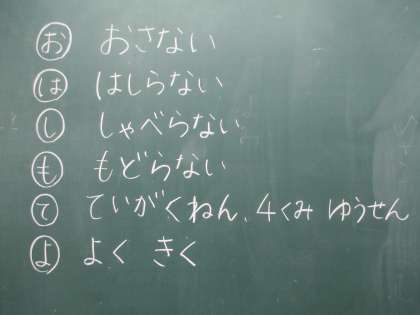 お おさない
は はしらない
し しゃべらない
も もどらない
て ていがくねん、4くみ ゆうせん
よ よく きく